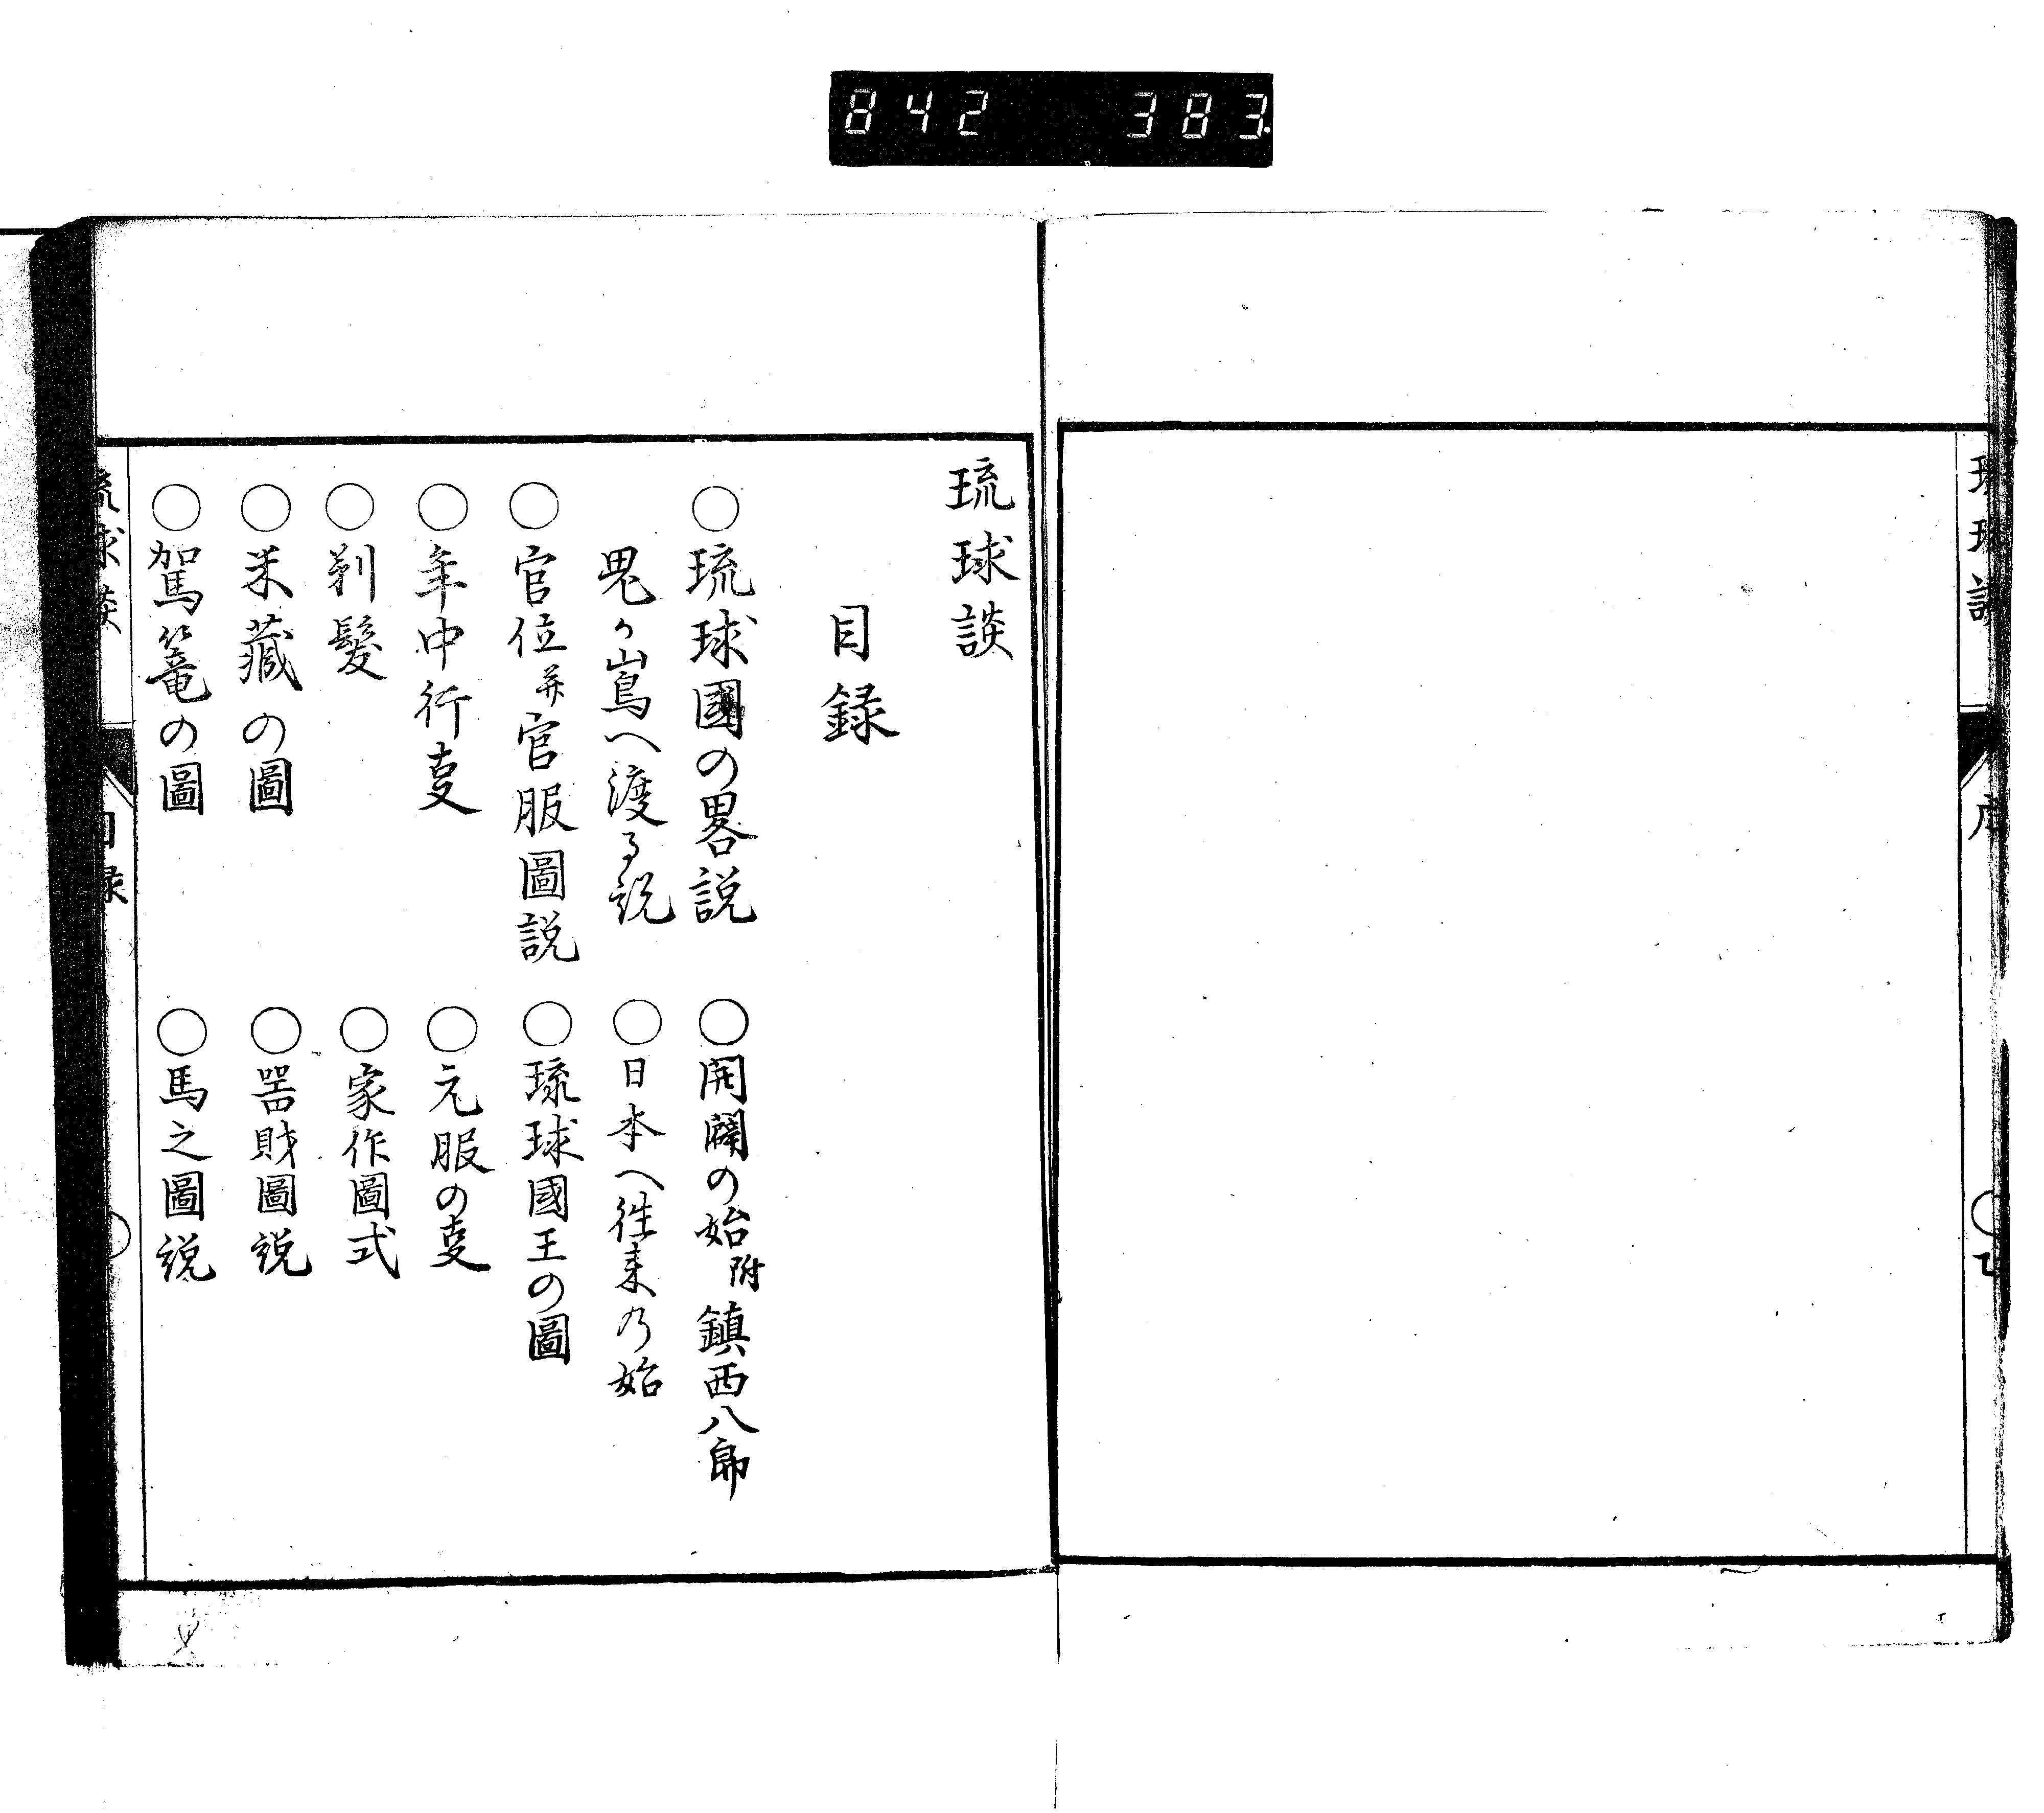 842 383
琉球談
序
琉球談
目録
○琉球國の畧説
○開闢の始附鎮西八郎
鬼か嶌へ渡る説
○日本へ徃来の始
○官位并官服圖説
○琉球國王の圖
○年中行叓
○元服の叓
○剃髪
○家作圖式
○米蔵の圖
○噐財圖説
○駕篭の圖
○馬之圖説
琉球談
目録